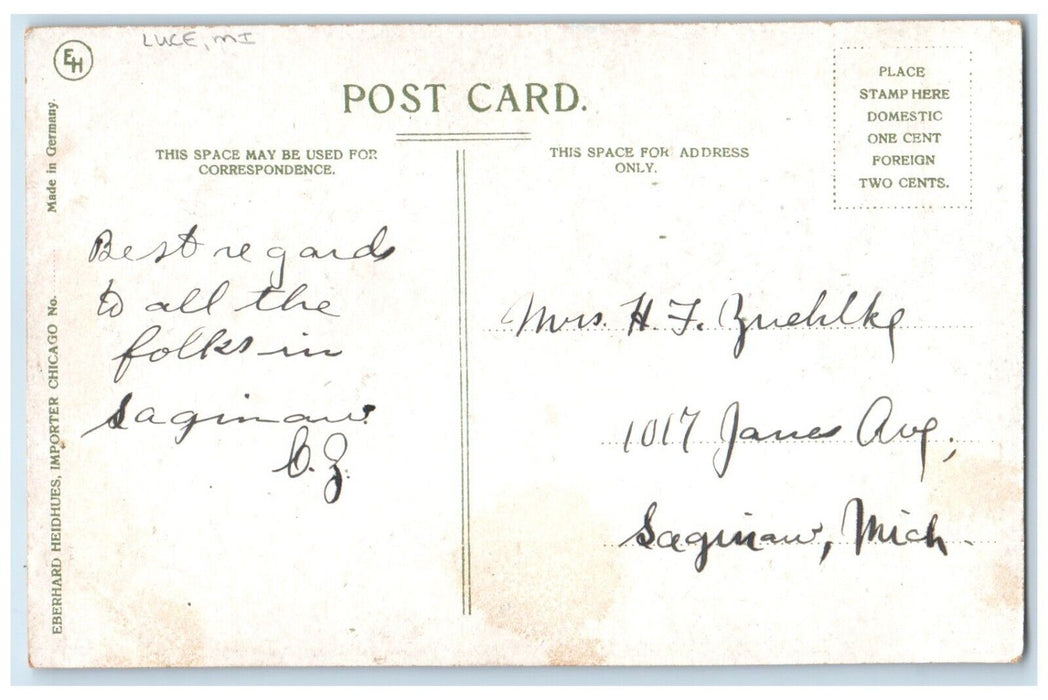 LUCE, MI
EH
POST CARD.
THIS SPACE MAY BE USED FOR
CORRESPONDENCE.
THIS SPACE FOR ADDRESS
ONLY.
PLACE
STAMP HERE
DOMESTIC
ONE CENT
FOREIGN
TWO CENTS.
Best regards
to all the
folks in
Saginaw.
C. Z.
Mrs. H. F. Zuehlke
1017 Janes Ave,
Saginaw, Mich.
EBERHARD HEIDHUES, IMPORTER CHICAGO No. Made in Germany.